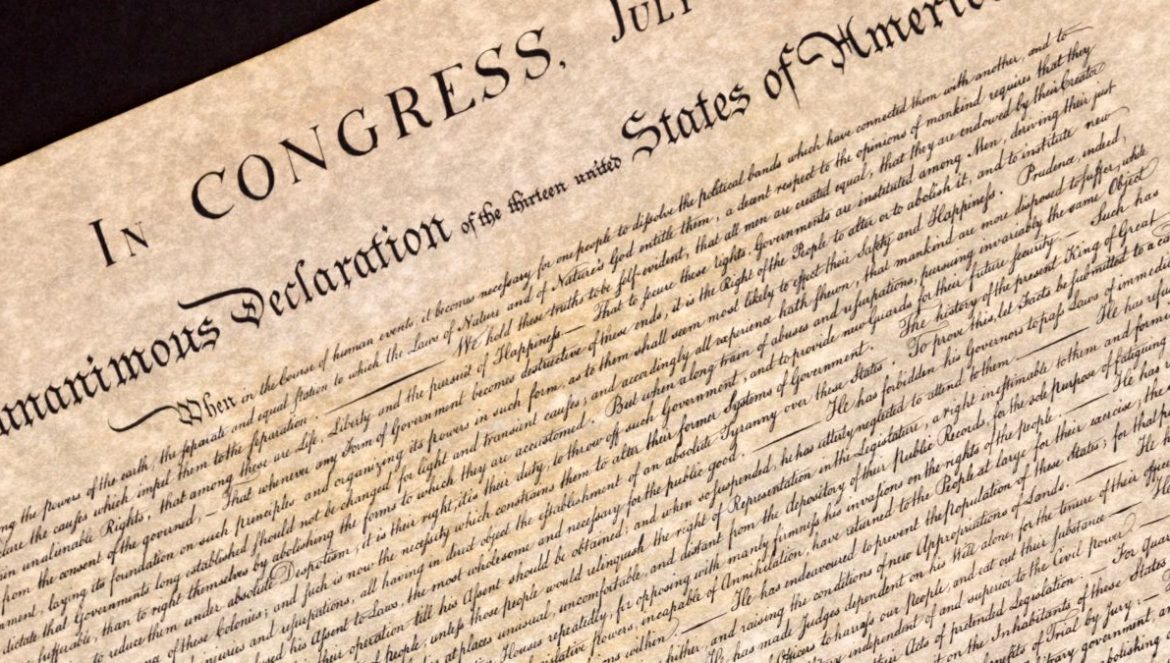 IN CONGRESS, JULY
Declaration of the thirteen united States of America
When in the Course of human events, it becomes necessary for one people to dissolve the political bands which have connected them with another, and to
the powers of the earth, the separate and equal station to which the Laws of Nature and of Nature's God entitle them, a decent respect to the opinions of mankind requires that they
the causes which impel them to the separation. ——— We hold these truths to be self-evident, that all men are created equal, that they are endowed by their Creator
unalienable Rights, that among these are Life, Liberty and the pursuit of Happiness.— That to secure these rights, Governments are instituted among Men, deriving their just
from the consent of the governed, — That whenever any Form of Government becomes destructive of these ends, it is the Right of the People to alter or to abolish it, and to institute new
laying its foundation on such principles and organizing its powers in such form, as to them shall seem most likely to effect their Safety and Happiness. Prudence, indeed,
dictate that Governments long established should not be changed for light and transient causes; and accordingly all experience hath shewn, that mankind are more disposed to suffer,
sufferable, than to right themselves by abolishing the forms to which they are accustomed. But when a long train of abuses and usurpations, pursuing invariably the same Object
to reduce them under absolute Despotism, it is their right, it is their duty, to throw off such Government, and to provide new Guards for their future security.— Such has
of these Colonies; and such is now the necessity which constrains them to alter their former Systems of Government. The history of the present King of Great
injuries and usurpations, all having in direct object the establishment of an absolute Tyranny over these States. To prove this, let Facts be submitted to a
his Assent to Laws, the most wholesome and necessary for the public good. He has forbidden his Governors to pass Laws of
their operation till his Assent should be obtained; and when so suspended, he has utterly neglected to attend to them He has
of people, unless those people would relinquish the right of Representation in the Legislature, a right inestimable to them and
at places unusual, uncomfortable, and distant from the depository of their public Records, for the sole purpose of fatiguing
Houses repeatedly, for opposing with manly firmness his invasions on the rights of the people. He has
powers, incapable of Annihilation, have returned to the People at large for their exercise; the
within. He has endeavoured to prevent the population of these States; for that
hither, and raising the conditions of new Appropriations of Lands. He
He has made Judges dependent on his Will alone, for the tenure of their
Officers to harrass our people, and eat out their substance
independent of and superior to the Civil power
their Acts of pretended Legislation: — For
on the Inhabitants of these States
of Trial by Jury: —
government